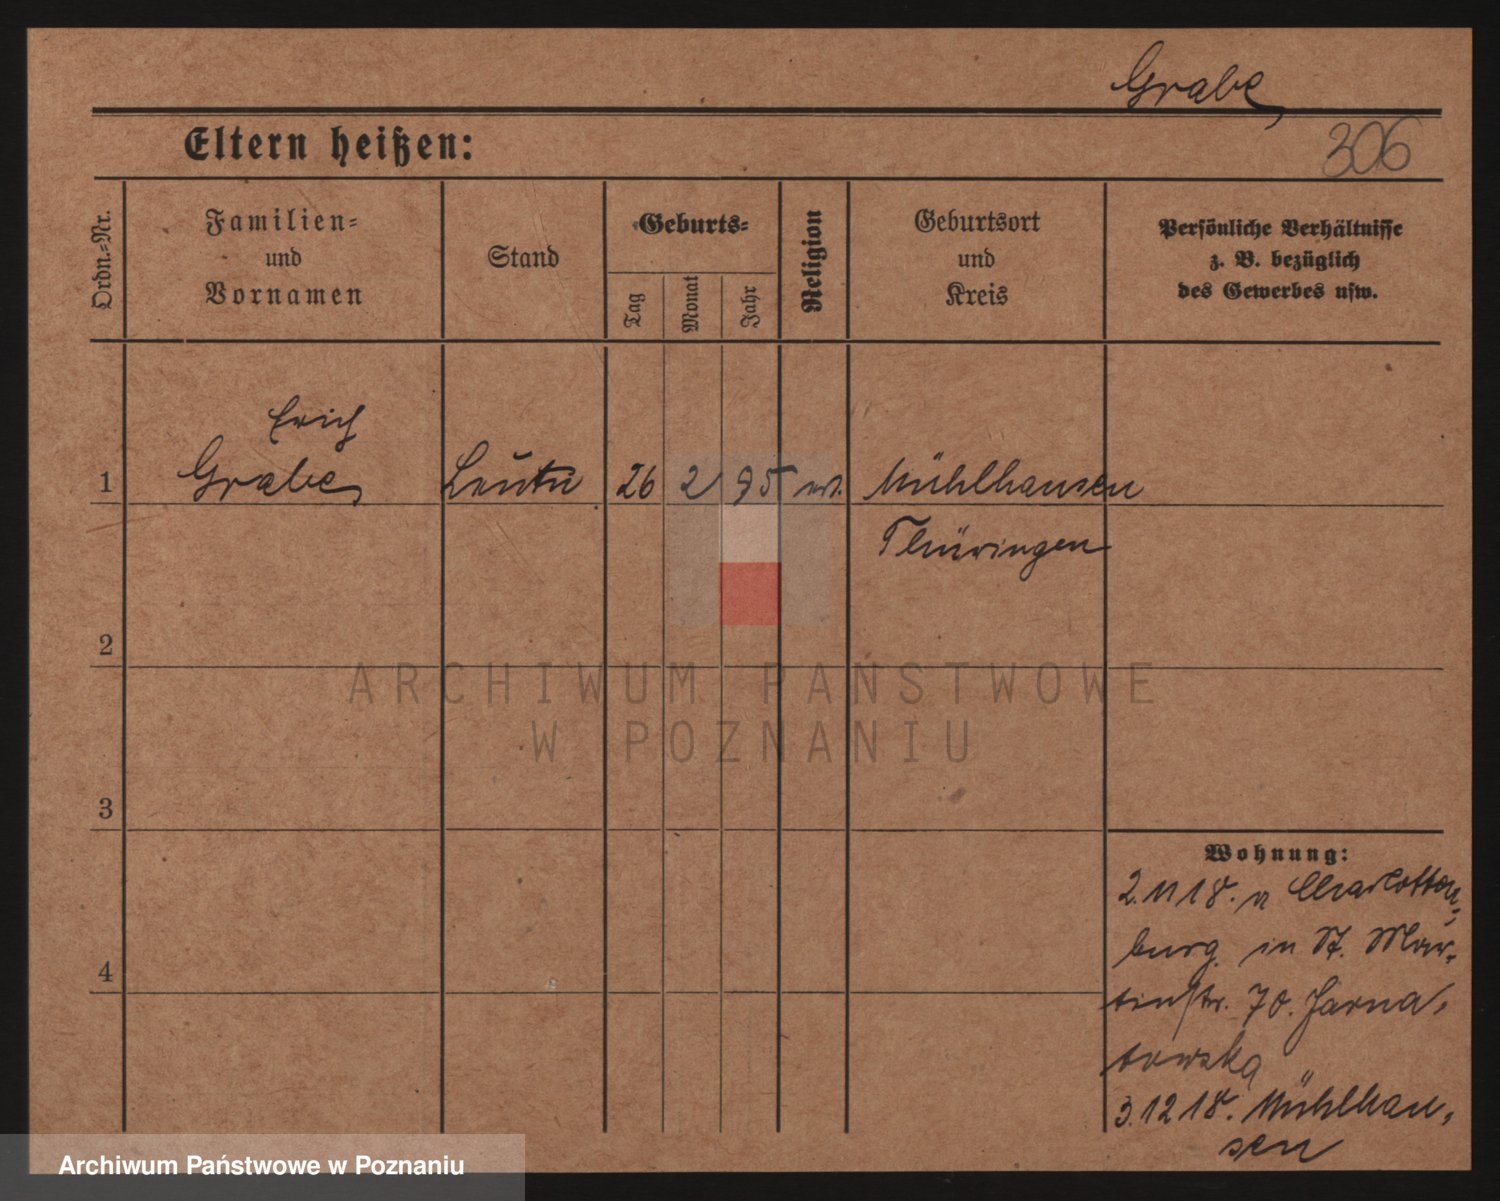 Grabe
306
Eltern heißen:
Ordn.-Nr.
Familien-
und
Vornamen
Stand
Geburts-
Tag
Monat
Jahr
Religion
Geburtsort
und
Kreis
Persönliche Verhältnisse
z. B. bezüglich
des Gewerbes usw.
Erich
1 Grabe 26 2 95 ev. Mühlhausen
Thüringen
2
3
4
Wohnung:
2.11 18. v Charlotten-
burg. in St. Mar-
tinstr. 70.
3.12 18. Mühlhau-
sen
ARCHIWUM PAŃSTWOWE
W POZNANIU
Archiwum Państwowe w Poznaniu